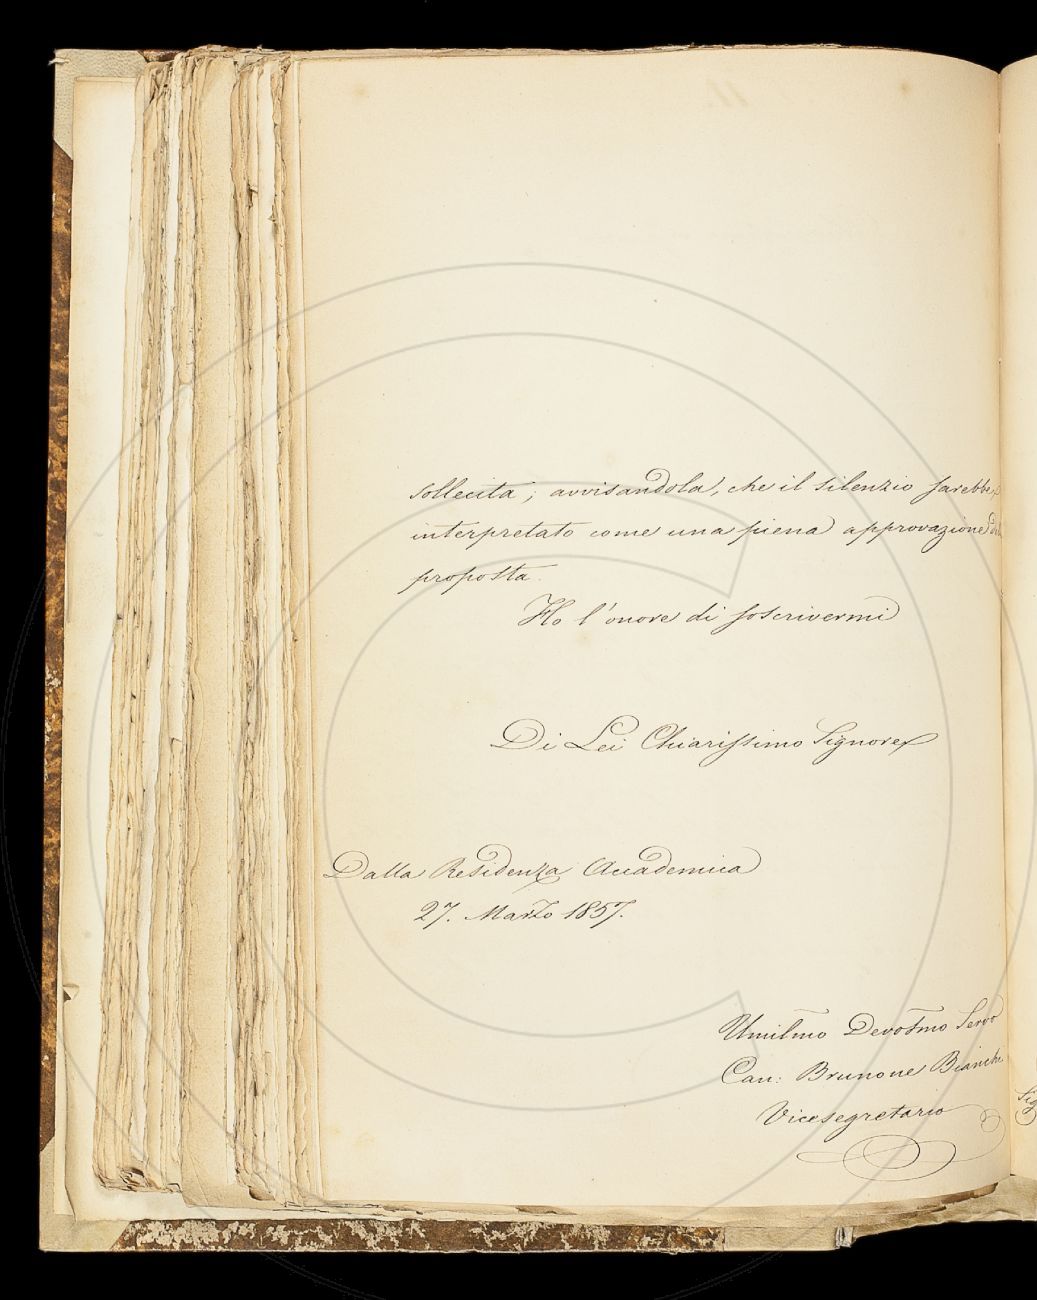 sollecita; avvisandola, che il silenzio sarebbe
interpretato come una piena approvazione
proposta.
Ho l'onore di soscrivermi
Di Lei Chiarissimo Signore
Dalla Residenza Accademica
27. Marzo 1857.
Umilmo Devotmo Servo
Can: Brunone Bianchi
Vicesegretario